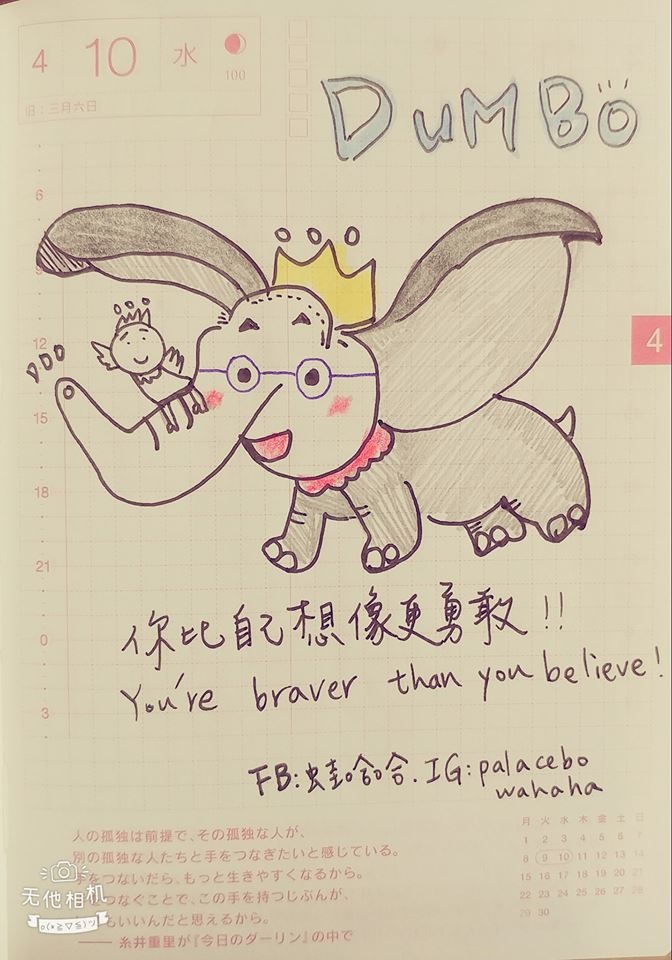 4 10 水
100
旧:三月六日
DUMBO
6
12
4
15
18
21
你比自己想像更勇敢!!
0
You're braver than you believe!
3
FB:蛙哈哈. IG:palacebo
wahaha
人の孤独は前提で、その孤独な人が、
別の孤独な人たちと手をつなぎたいと感じている。
手をつないだら、もっと生きやすくなるから。
つなぐことで、この手を持つじぶんが、
もいいんだと思えるから。
―― 糸井重里が『今日のダーリン』の中で
月 火 水 木 金 土 日
1 2 3 4 5 6 7
8 9 10 11 12 13 14
15 16 17 18 19 20 21
22 23 24 25 26 27 28
29 30
无他相机
o(≧▽≦)ツ